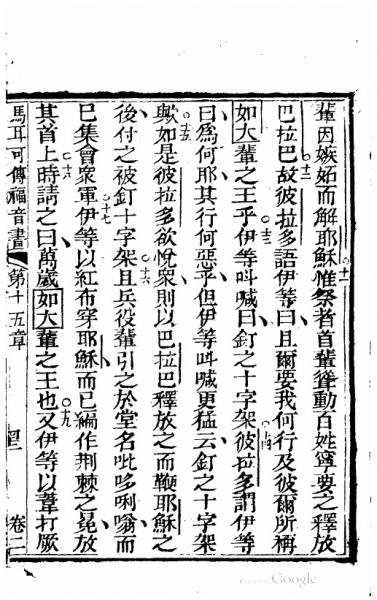 輩因嫉妬而解耶穌惟祭者首輩聳動百姓寧要之釋放
巴拉巴故彼拉多語伊等曰且爾要我何行及彼爾所稱
如大輩之王乎伊等叫喊曰釘之十字架彼拉多謂伊等
曰爲何耶其行何惡乎但伊等叫喊更猛云釘之十字架
歟如是彼拉多欲悅衆則以巴拉巴釋放之而鞭耶穌之
後付之被釘十字架且兵役輩引之於堂名吡哆唎嗡而
已集會衆軍伊等以紅布穿耶穌而已編作荆棘之冕放
其首上時請之曰萬歲如大輩之王也又伊等以葦打厥
馬耳可傳福音書 第十五章 卷二
十一
十二
十三
十四
十五
十六
十七
十八
十九
Google